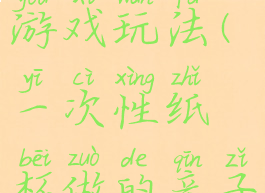 yóu xì wán fǎ
游戏玩法(
yī cì xìng zhǐ
一次性纸
bēi zuò de qīn zǐ
杯做的亲子